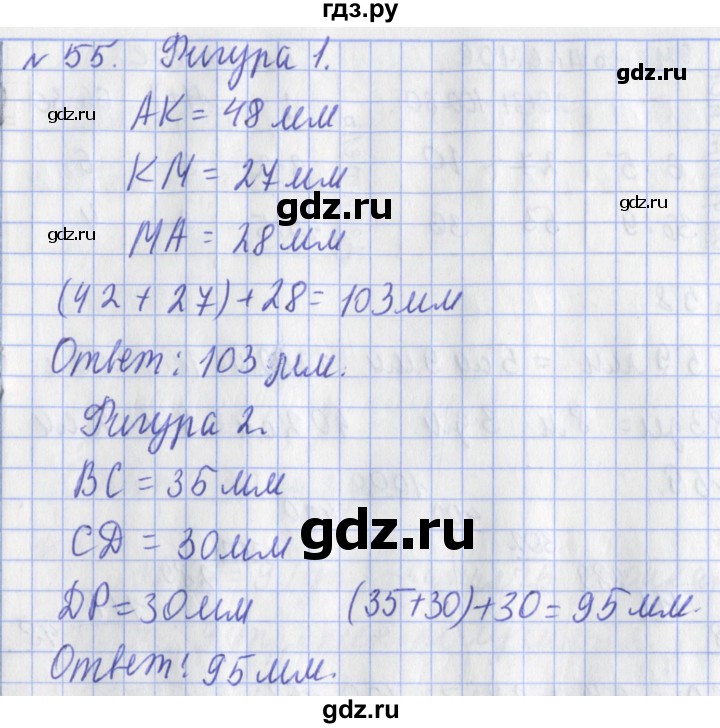 гдз.ру
№ 55. Фигура 1.
gdz.ru
АК = 48 мм
gdz.ru
КМ = 27 мм
gdz.ru
gdz.ru
МА = 28 мм
gdz.ru
(42 + 27) + 28 = 103 мм
Ответ: 103 мм.
Фигура 2.
ВС = 35 мм
СД = 30 мм
gdz.ru
ДР = 30 мм (35+30)+30 = 95 мм.
Ответ: 95 мм.
gdz.ru
gdz.ru